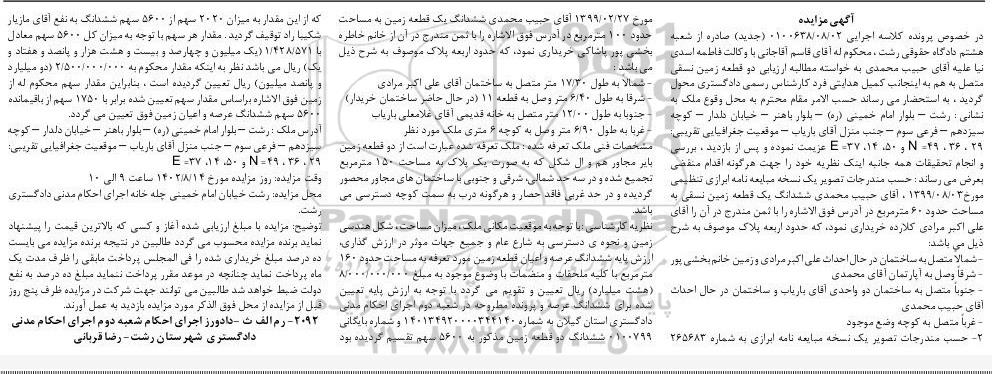 آگهی مزایده
در خصوص پرونده کلاسه اجرایی ۰۱۰۰۶۳۸/۰۸/۰۲ (جدید) صادره از شعبه
هشتم دادگاه حقوقی رشت ، محکوم له آقای قاسم آقاجانی با وکالت فاطمه اسدی
نیا علیه آقای حبیب محمدی به خواسته مطالبه ارزیابی دو قطعه زمین نسقی
متصل به هم به اینجانب کمیل هدایتی فرد کارشناس رسمی دادگستری محول
گردید ، به استحضار می رساند حسب الامر مقام محترم به محل وقوع ملک به
نشانی : رشت – بلوار امام خمینی (ره) – بلوار باهنر – خیابان دلدار – کوچه
سیزدهم – فرعی سوم – جنب منزل آقای باریاب – موقعیت جغرافیایی تقریبی:
۲۹ ، ۳۶ ، ۴۹= N و ۵۰ ، ۱۴، ۳۷= E عزیمت نموده و پس از بازدید ، بررسی
و انجام تحقیقات همه جانبه اینک نظریه خود را جهت هرگونه اقدام منقضی
بعرض می رساند : حسب مندرجات تصویر یک نسخه مبایعه نامه ابرازی تنظیمی
مورخ۱۳۹۹/۰۸/۰۳ ، آقای حبیب محمدی ششدانگ یک قطعه زمین نسقی به
مساحت حدود ۶۰ مترمربع در آدرس فوق الاشاره را با ثمن مندرج در آن را آقای
علی اکبر مرادی کلارده خریداری نمود، که حدود اربعه پلاک موصوف به شرح
ذیل می باشد:
– شمالا متصل به ساختمان در حال احداث علی اکبر مرادی و زمین خانم بخشی پور
– شرقا وصل به آپارتمان آقای محمدی
– جنوباً متصل به ساختمان دو واحدی آقای باریاب و ساختمان در حال احداث
آقای حبیب محمدی
– غرباً متصل به کوچه وضع موجود
۲– حسب مندرجات تصویر یک نسخه مبایعه نامه ابرازی به شماره ۲۶۵۶۸۳
مورخ ۱۳۹۹/۰۲/۲۷ آقای حبیب محمدی ششدانگ یک قطعه زمین به مساحت
حدود ۱۰۰ مترمربع در آدرس فوق الاشاره را با ثمن مندرج در آن از خانم خاطره
بخشی پور پاشاکی خریداری نمود، که حدود اربعه پلاک موصوف به شرح ذیل
می باشد :
– شمالاً به طول ۱۷/۳۰ متر متصل به ساختمان آقای علی اکبر مرادی
– شرقا به طول ۶/۴۰ متر وصل به قطعه ۱۱ (در حال حاضر ساختمان خریدار)
– جنوبا به طول ۱۲/۰۰ متر متصل به خانه قدیمی آقای غلامعلی باریاب
– غربا به طول ۶/۹۰ متر وصل به کوچه ۶ متری ملک مورد نظر
مشخصات فنی ملک تعرفه شده : ملک تعرفه شده عبارت است از دو قطعه زمین
بایر مجاور هم و ال شکل که به صورت یک پلاک به مساحت ۱۵۰ مترمربع
تجمیع شده و در سه حد شمالی، شرقی و جنوبی با ساختمان های مجاور محصور
گردیده و در حد غربی فاقد حصار و هرگونه درب به سمت کوچه دسترسی می
باشد.
نظریه کارشناسی : با توجه به موقعیت مکانی ملک، میزان مساحت ، شکل هندسی
زمین و نحوه ی دسترسی به شارع عام و جمیع جهات موثر در ارزش گذاری،
ارزش پایه ششدانگ عرصه و اعیان قطعه زمین مورد تعرفه به مساحت حدود ۱۶۰
مترمربع با کلیه ملحقات و منضمات با وضوع موجود به مبلغ ۸/۰۰۰/۰۰۰/۰۰۰
(هشت میلیارد) ریال تعیین و تقویم می گردد با توجه به ارزش پایه تعیین
شده برای ششدانگ عرصه و پرونده مطروحه در شعبه دوم اجرای احکام مدنی
دادگستری استان گیلان به شماره ۱۴۰۱۳۴۹۲۰۰۰۰۳۴۴۱۴۰ و شماره بایگانی
۰۱۰۰۷۹۹ ششدانگ دو قطعه زمین مذکور به ۵۶۰۰ سهم تقسیم گردیده بود
که از این مقدار به میزان ۲۰۲۰ سهم از ۵۶۰۰ سهم ششدانگ به نفع آقای مازیار
شکیبا راد توقیف گردید . مقدار هر سهم با توجه به میزان کل ۵۶۰۰ سهم معادل
با ۱/۴۲۸/۵۷۱ (یک میلیون و چهارصد و بیست و هشت هزار و پانصد و هفتاد و
یک) ریال می باشد نظر به اینکه مقدار محکوم به ۲/۵۰۰/۰۰۰/۰۰۰ (دو میلیارد
و پانصد میلیون) ریال تعیین گردیده است ، بنابراین مقدار سهم محکوم له از
زمین فوق الاشاره براساس مقدار سهم تعیین شده برابر با ۱۷۵۰ سهم از باقیمانده
۵۶۰۰ سهم ششدانگ عرصه و اعیان زمین فوق تعیین می گردد.
آدرس ملک : رشت – بلوار امام خمینی (ره) – بلوار باهنر – خیابان دلدار – کوچه
سیزدهم – فرعی سوم – جنب منزل آقای باریاب – موقعیت جغرافیایی تقریبی:
۲۹ ، ۳۶ ، ۴۹= N و ۵۰ ، ۱۴، ۳۷= E
وقت مزایده: روز مزایده مورخ ۱۴۰۲/۸/۱۴ ساعت ۹ الی ۱۰
محل مزایده: رشت خیابان امام خمینی چله خانه اجرای احکام مدنی دادگستری
رشت.
توضیح: مزایده با مبلغ ارزیابی شده آغاز و کسی که بالاترین قیمت را پیشنهاد
نماید برنده مزایده محسوب می گردد طالبین در نتیجه برنده مزایده می بایست
ده درصد مبلغ خریداری شده را فی المجلس پرداخت مابقی را ظرف مدت یک
ماه پرداخت نماید چنانچه در موعد مقرر پرداخت ننماید مبلغ ده درصد به نفع
دولت ضبط خواهد شد طالبین می توانند جهت شرکت در مزایده ظرف پنج روز
قبل از مزایده از محل فوق الذکر مورد مزایده بازدید به عمل آورند.
۲۰۹۲– رم الف ث –دادورز اجرای احکام شعبه دوم اجرای احکام مدنی
دادگستری شهرستان رشت – رضا قربانی
ParsNamadData
۰۲۱-۸۸۳۴۹۶۷۰-۵